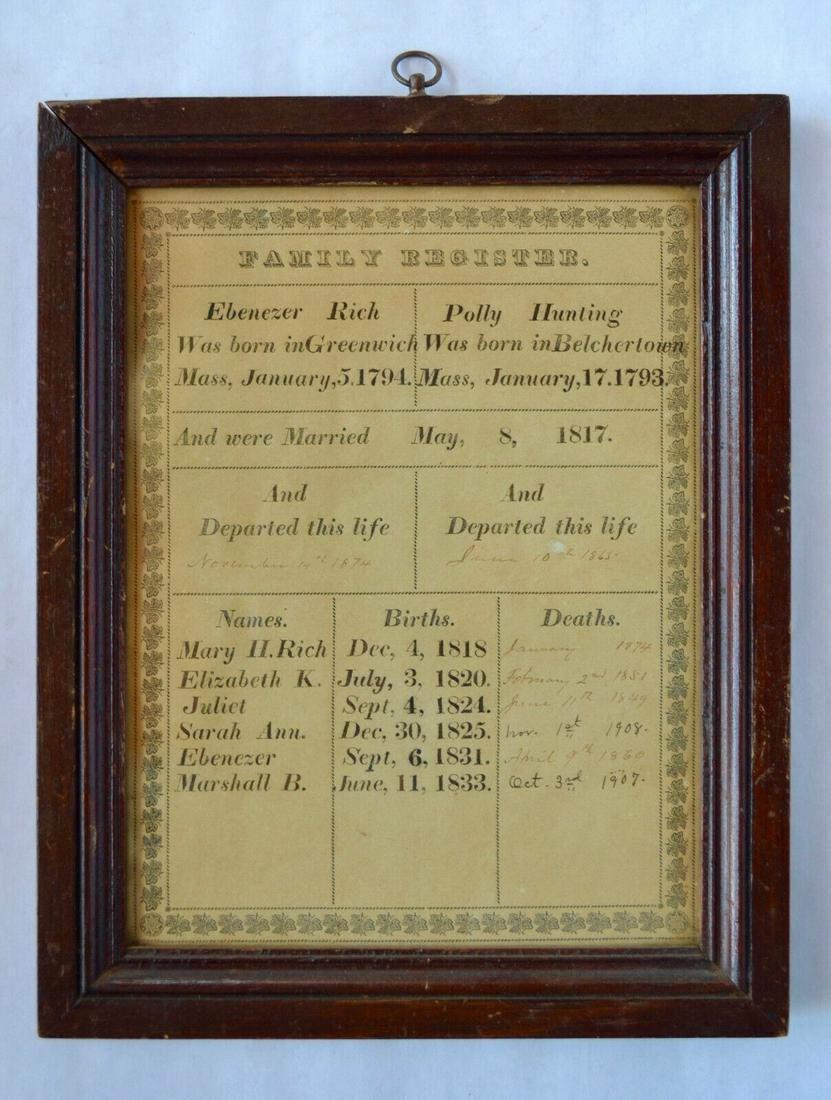 FAMILY REGISTER.
Ebenezer Rich
Was born in Greenwich
Mass, January, 5. 1794.
Polly Hunting
Was born in Belchertown
Mass, January, 17. 1793.
And were Married May, 8, 1817.
And
Departed this life
November 14th 1874
And
Departed this life
June 10th 1865.
Names. Births. Deaths.
Mary H. Rich Dec, 4, 1818 January 1874
Elizabeth K. July, 3, 1820. February 2nd 1851
Juliet Sept, 4, 1824. June 11th 1849
Sarah Ann. Dec, 30, 1825. Nov. 1st 1908.
Ebenezer Sept, 6, 1831. April 9th 1860
Marshall B. June, 11, 1833. Oct. 3rd 1907.